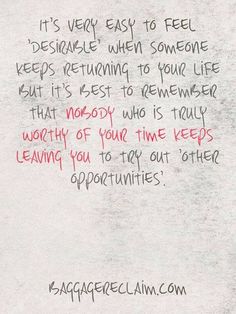 IT'S VERY EASY TO FEEL
'DESIRABLE' WHEN SOMEONE
KEEPS RETURNING TO YOUR LIFE
BUT IT'S BEST TO REMEMBER
THAT NOBODY WHO IS TRULY
WORTHY OF YOUR TIME KEEPS
LEAVING YOU TO TRY OUT 'OTHER
OPPORTUNITIES'.
BAGGAGERECLAIM.COM